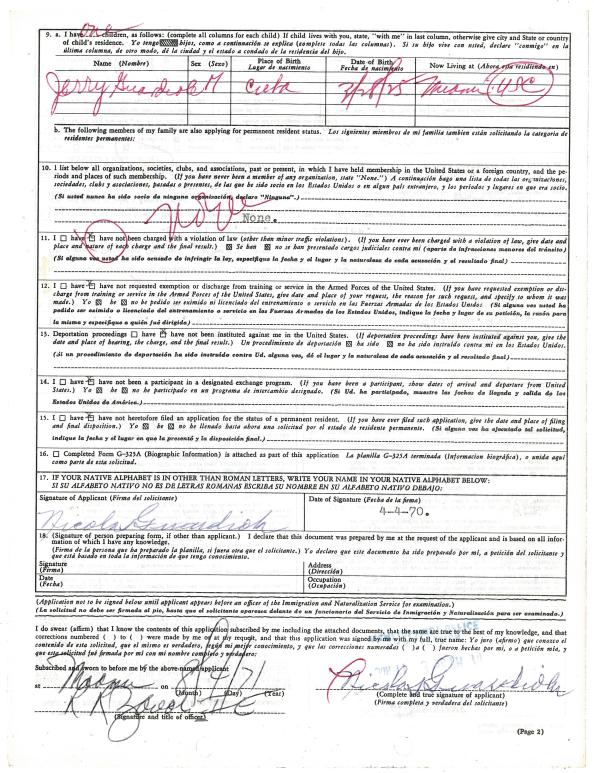 9. a. I have one children, as follows: (complete all columns for each child) If child lives with you, state, "with me" in last column, otherwise give city and State or
country of child's residence. Yo tengo hijos, como a continuación se explica (complete todas las columnas). Si su hijo vive con usted, declare "conmigo" en la
última columna, de otro modo, dé la ciudad y el estado o condado de la residencia del hijo.
Name (Nombre) Sex (Sexo) Place of Birth Date of Birth Now Living at (Ahora esta residiendo en)
Lugar de nacimiento Fecha de nacimiento
Jerry Guardiola M Cuba 2/28/25 Miami USC
b. The following members of my family are also applying for permanent resident status. Los siguientes miembros de mi familia tambien están solicitando la categoría de
residentes permanentes:
10. I list below all organizations, societies, clubs, and associations, past or present, in which I have held membership in the United States or a foreign country, and the pe-
riods and places of such membership. (If you have never been a member of any organization, state "None.") A continuación hago una lista de todas las organizaciones,
sociedades, clubs y asociaciones, pasadas o presentes, de las que he sido socio en los Estados Unidos o en algun país extranjero, y los períodos y lugares en que era socio.
(Si usted nunca ha sido socio de ninguna organización, declare "Ninguna".)
None
None.
11. I have have not been charged with a violation of law (other than minor traffic violations). (If you have ever been charged with a violation of law, give date and
place and nature of each charge and the final result.) Se han no se han presentado cargos judiciales contra mí (aparte de infracciones menores del tránsito)
(Si alguna vez usted ha sido acusado de infringir la ley, especifique la fecha y el lugar y la naturaleza de cada acusación y el resultado final.)
12. I have have not requested exemption or discharge from training or service in the Armed Forces of the United States. (If you have requested exemption or dis-
charge from training or service in the Armed Forces of the United States, give date and place of your request, the reason for such request, and specify to whom it was
made.) Yo he no he pedido ser eximido o licenciado en servicio en las Fuerzas Armadas de los Estados Unidos. (Si alguna vez usted ha
pedido ser eximido o licenciado del entrenamiento o servicio en las Fuerzas Armadas de los Estados Unidos, indique la fecha y lugar de su petición, la razón para
la misma y especifique a quién fué dirigida)
13. Deportation proceedings have have not been instituted against me in the United States. (If deportation proceedings have been instituted against you, give the
date and place of hearing, the charge, and the final result.) Un procedimiento de deportación ha sido no ha sido instruido contra mí en los Estados Unidos.
(Si un procedimiento de deportación ha sido instruido contra Ud. alguna vez, dé el lugar y la naturaleza de cada acusación y el resultado final)
14. I have have not been a participant in a designated exchange program. (If you have been a participant, show dates of arrival and departure from United
States.) Yo he no he participado en un programa de intercambio designado. (Si Ud. ha participado, muestre las fechas de llegada y salida de los
Estados Unidos de América.)
15. I have have not heretofore filed an application for the status of a permanent resident. (If you have ever filed such application, give the date and place of filing
and final disposition.) Yo he no he llenado hasta ahora una solicitud por el estado de residente permanente. (Si alguna vez ha ejecutado tal solicitud,
indique la fecha y el lugar en que la presentó y la disposición final.)
16. Completed Form G-325A (Biographic Information) is attached as part of this application La planilla G-325A terminada (Informacion biográfica), o unida aquí
como parte de esta solicitud.
17. IF YOUR NATIVE ALPHABET IS IN OTHER THAN ROMAN LETTERS, WRITE YOUR NAME IN YOUR NATIVE ALPHABET BELOW:
SI SU ALFABETO NATIVO NO ES DE LETRAS ROMANAS ESCRIBA SU NOMBRE EN SU ALFABETO NATIVO DEBAJO:
Signature of Applicant (Firma del solicitante) Date of Signature (Fecha de la firma)
4-4-70.
18. (Signature of person preparing form, if other than applicant.) I declare that this document was prepared by me at the request of the applicant and is based on all infor-
mation of which I have any knowledge.
(Firma de la persona que ha preparado la planilla, si fuera otra que el solicitante.) Yo declaro que este documento ha sido preparado por mí, a petición del solicitante y
que está basado en toda la información de que tengo conocimiento.
Signature Address
(Firma) (Dirección)
Date Occupation
(Fecha) (Ocupación)
(Application not to be signed below until applicant appears before an officer of the Immigration and Naturalization Service for examination.)
(La solicitud no debe ser firmada al pie, hasta que el solicitante aparezca delante de un funcionario del Servicio de Inmigración y Naturalización para ser examinado.)
I do swear (affirm) that I know the contents of this application subscribed by me including the attached documents, that the same are true to the best of my knowledge, and that
corrections numbered ( ) to ( ) were made by me or at my request, and that this application was signed by me with my full, true name: Yo juro (afirmo) que conozco el
contenido de esta solicitud, que el mismo es verdadero, según mi mejor conocimiento, y que las correcciones numeradas ( ) a ( ) fueron hechas por mí, o a petición mía, y
que esta solicitud fué firmada por mí con mi nombre completo y verdadero:
Subscribed and sworn to before me by the above-named applicant
at Miami on 8/4/71
(Month) (Day) (Year)
(Complete and true signature of applicant)
(Firma completa y verdadera del solicitante)
(Signature and title of officer)
(Page 2)